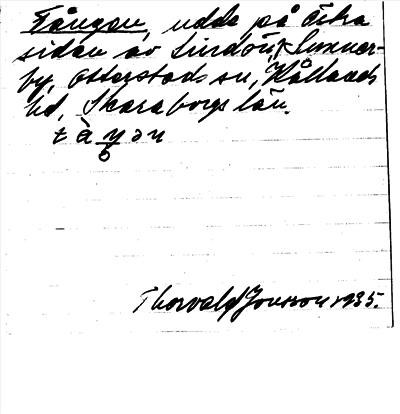 Tången, udde på östra
sidan av Lindön, Sunner-
by, Otterstads sn, Kållands
hd, Skaraborgs län.
Thorvald Jonsson 1935.